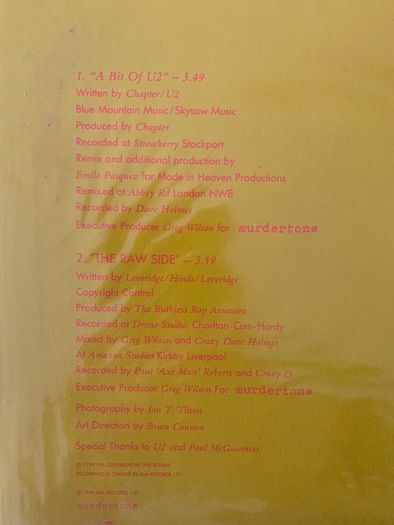 1. "A Bit Of U2" – 3.49
Written by Chapter/U2
Blue Mountain Music/Skysaw Music
Produced by Chapter
Recorded at Strawberry Stockport
Remix and additional production by
Emilo Pasquez for Made in Heaven Productions
Remixed at Abbey Rd London NW8
Recorded by Dave Holmes
Executive Producer Greg Wilson for murdertone
2. "THE RAW SIDE" – 3.19
Written by Leveridge/Hinds/Leveridge
Copyright Control
Produced by The Ruthless Rap Assassins
Recorded at Drone Studio, Chorlton-Cum-Hardy
Mixed by Greg Wilson and Crazy Dave Holmes
At Amazon Studios Kirkby Liverpool
Recorded by Paul 'Axe Man' Roberts and Crazy D
Executive Producer Greg Wilson For murdertone
Photography by Ian T. Tilton
Art Direction by Brian Cannon
Special Thanks to U2 and Paul McGuinness
℗ 1989 THE COPYRIGHT IN THIS SOUND
RECORDING IS OWNED BY EMI RECORDS LTD
© 1989 EMI RECORDS LTD
murdertone